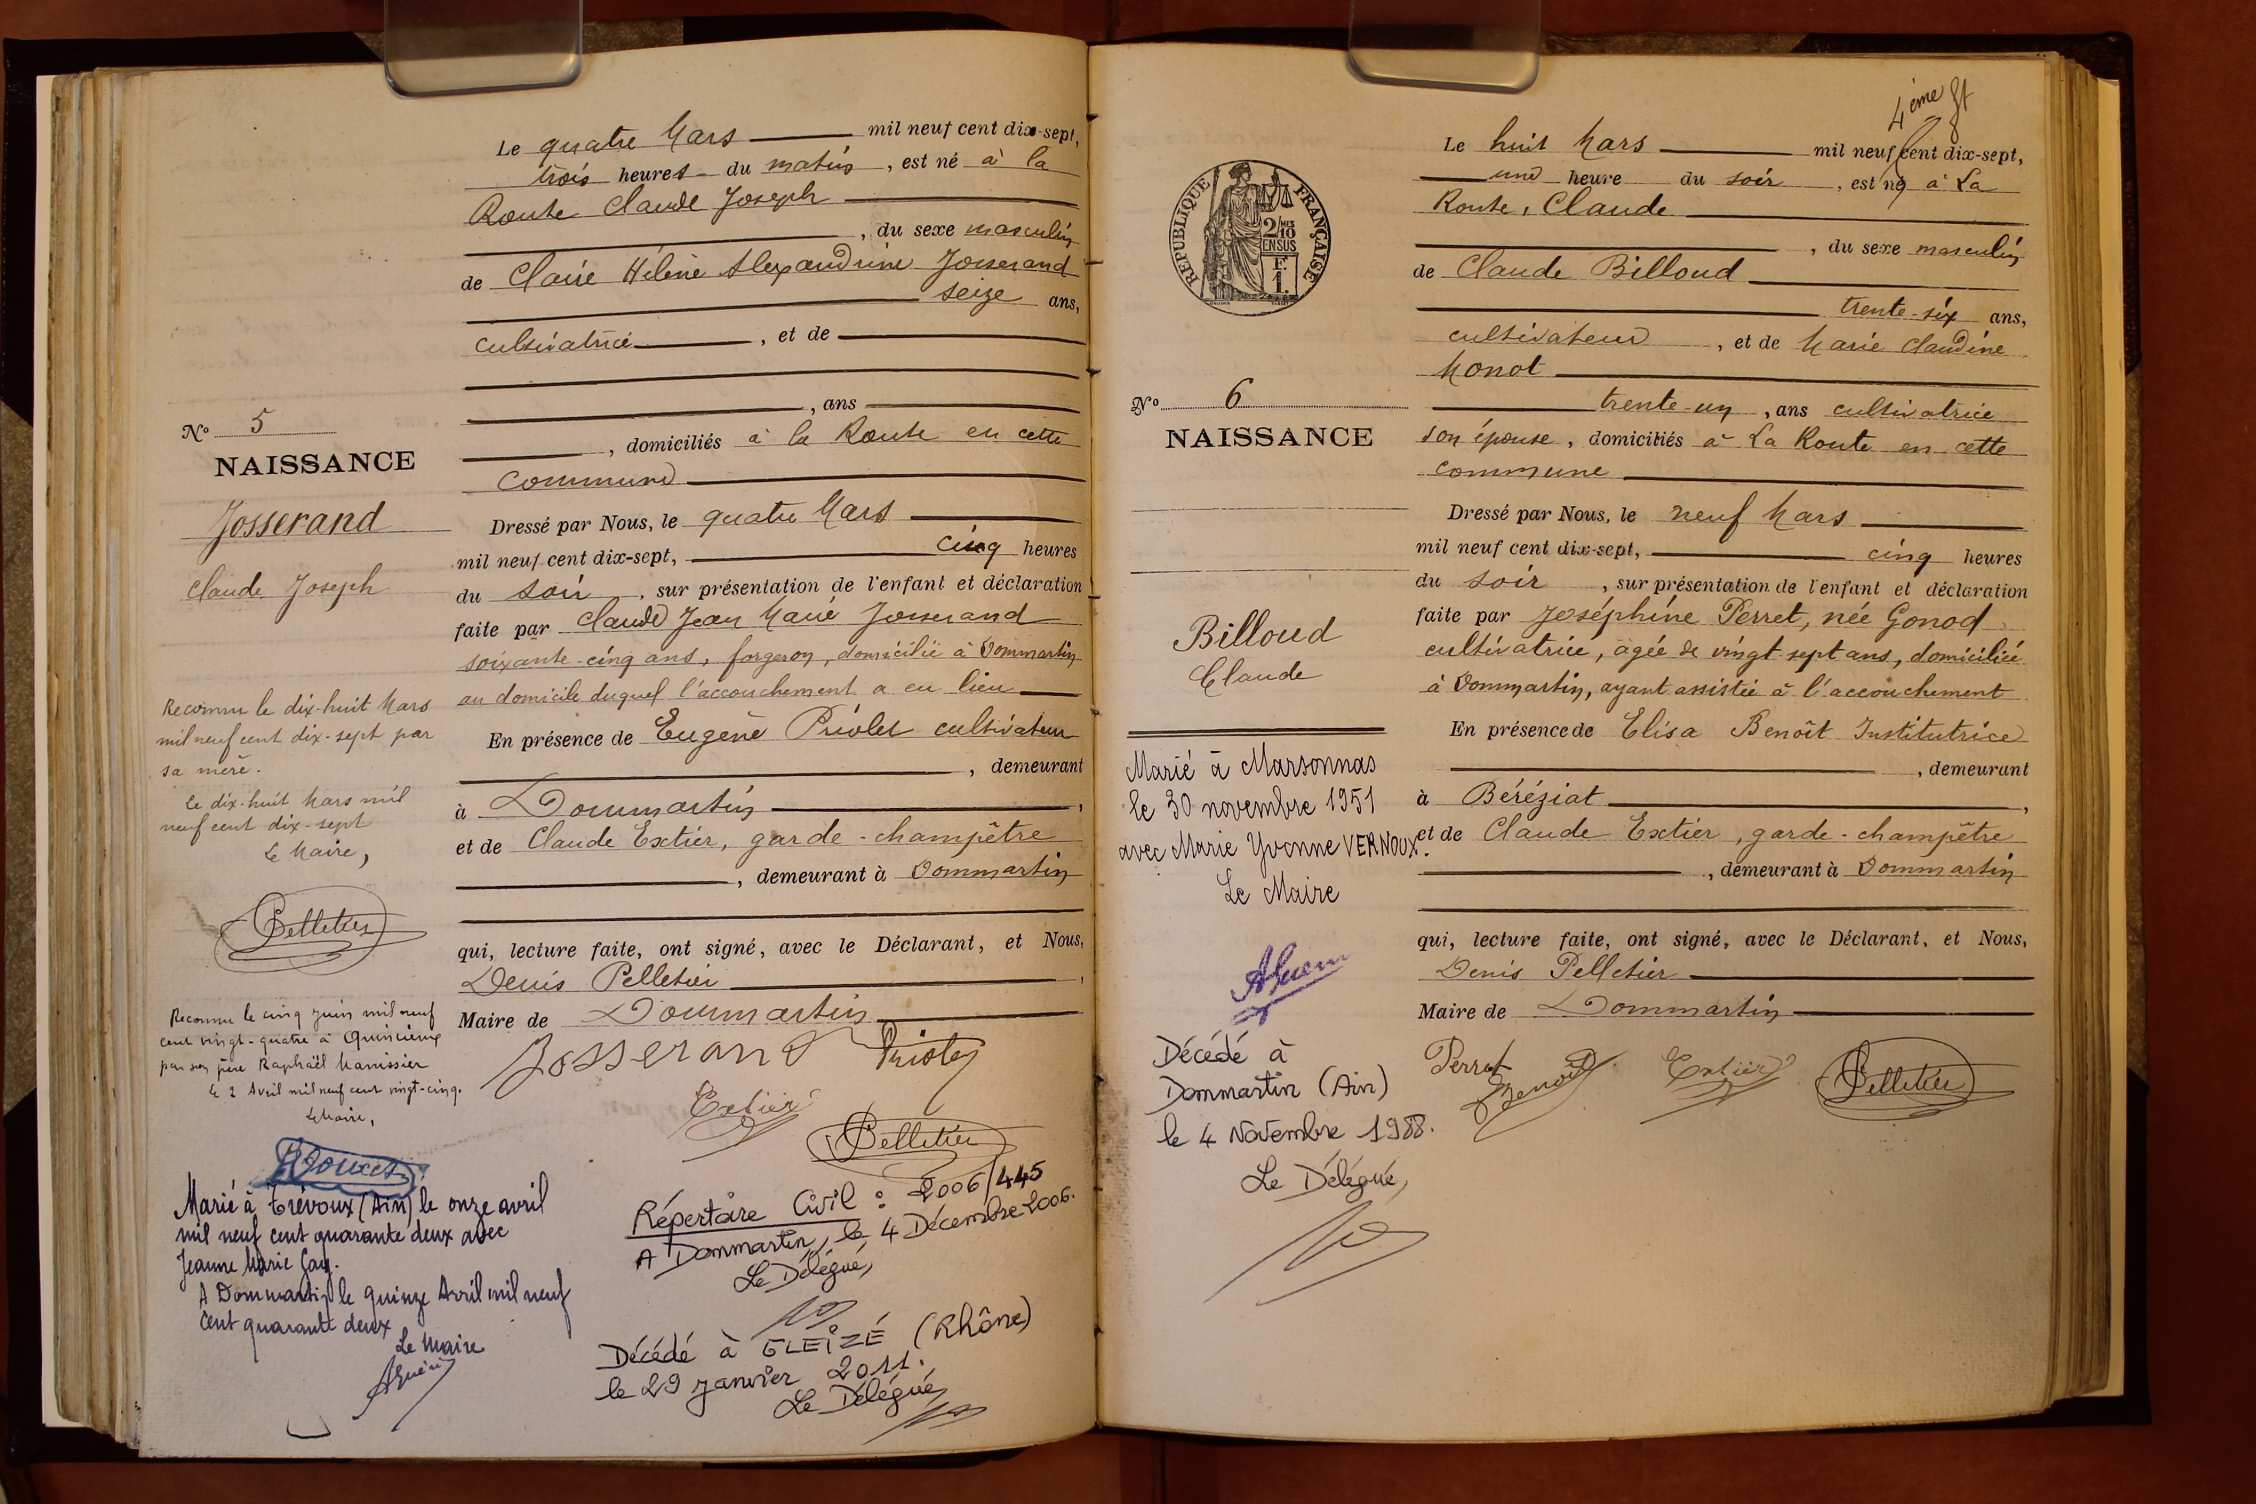 Le quatre Mars mil neuf cent dix-sept,
trois heures du matin, est né à la
Route Claude Joseph
, du sexe masculin
de Claire Hélène Alexandrine Josserand
seize ans,
cultivatrice, et de
, ans
, domiciliés à la Route en cette
commune
Dressé par Nous, le quatre Mars
mil neuf cent dix-sept, cinq heures
du soir, sur présentation de l'enfant et déclaration
faite par Claude Jean Marie Josserand
soixante-cinq ans, forgeron, domicilié à Dommartin
au domicile duquel l'accouchement a eu lieu
En présence de Eugène Priolet cultivateur
, demeurant
à Dommartin,
et de Claude Extier, garde-champêtre
, demeurant à Dommartin
qui, lecture faite, ont signé, avec le Déclarant, et Nous,
Denis Pelletier,
Maire de Dommartin
Josserand
Extier
Pelletier
N° 5
NAISSANCE
Josserand
Claude Joseph
Reconnu le dix-huit Mars
mil neuf cent dix-sept par
sa mère.
le dix-huit Mars mil
neuf cent dix-sept
Le Maire,
Pelletier
Reconnu le cinq juin mil neuf
cent vingt-quatre à Quincieux
par son père Raphaël Manissier
le 2 Avril mil neuf cent vingt-cinq.
Le Maire,
Marié à Trévoux (Ain) le onze avril
mil neuf cent quarante deux avec
Jeanne Marie Gay.
A Dommartin le quinze Avril mil neuf
cent quarante deux
Le Maire
Répertoire Civil : 2006/445
A Dommartin, le 4 Décembre 2006.
Le Délégué,
Décédé à GLEIZÉ (Rhône)
le 29 janvier 2011.
Le Délégué,
4ème ft
Le huit Mars mil neuf cent dix-sept,
une heure du soir, est né à La
Route, Claude
, du sexe masculin
de Claude Billoud
trente-six ans,
cultivateur, et de Marie Claudine
Monot
trente-un, ans cultivatrice
son épouse, domiciliés à La Route en cette
commune
Dressé par Nous, le neuf Mars
mil neuf cent dix-sept, cinq heures
du soir, sur présentation de l'enfant et déclaration
faite par Joséphine Perret, née Gonod
cultivatrice, âgée de vingt-sept ans, domiciliée
à Dommartin, ayant assistée à l'accouchement
En présence de Elisa Benoît Institutrice
, demeurant
à Béréziat,
et de Claude Extier, garde-champêtre
, demeurant à Dommartin
qui, lecture faite, ont signé, avec le Déclarant, et Nous,
Denis Pelletier
Maire de Dommartin
Perret
Benoît
Extier
Pelletier
RÉPUBLIQUE FRANÇAISE
2/10
EN SUS
N° 6
NAISSANCE
Billoud
Claude
Marié à Marsonnas
le 30 novembre 1951
avec Marie Yvonne VERNOUX.
Le Maire
Décédé à
Dommartin (Ain)
le 4 Novembre 1988.
Le Délégué,